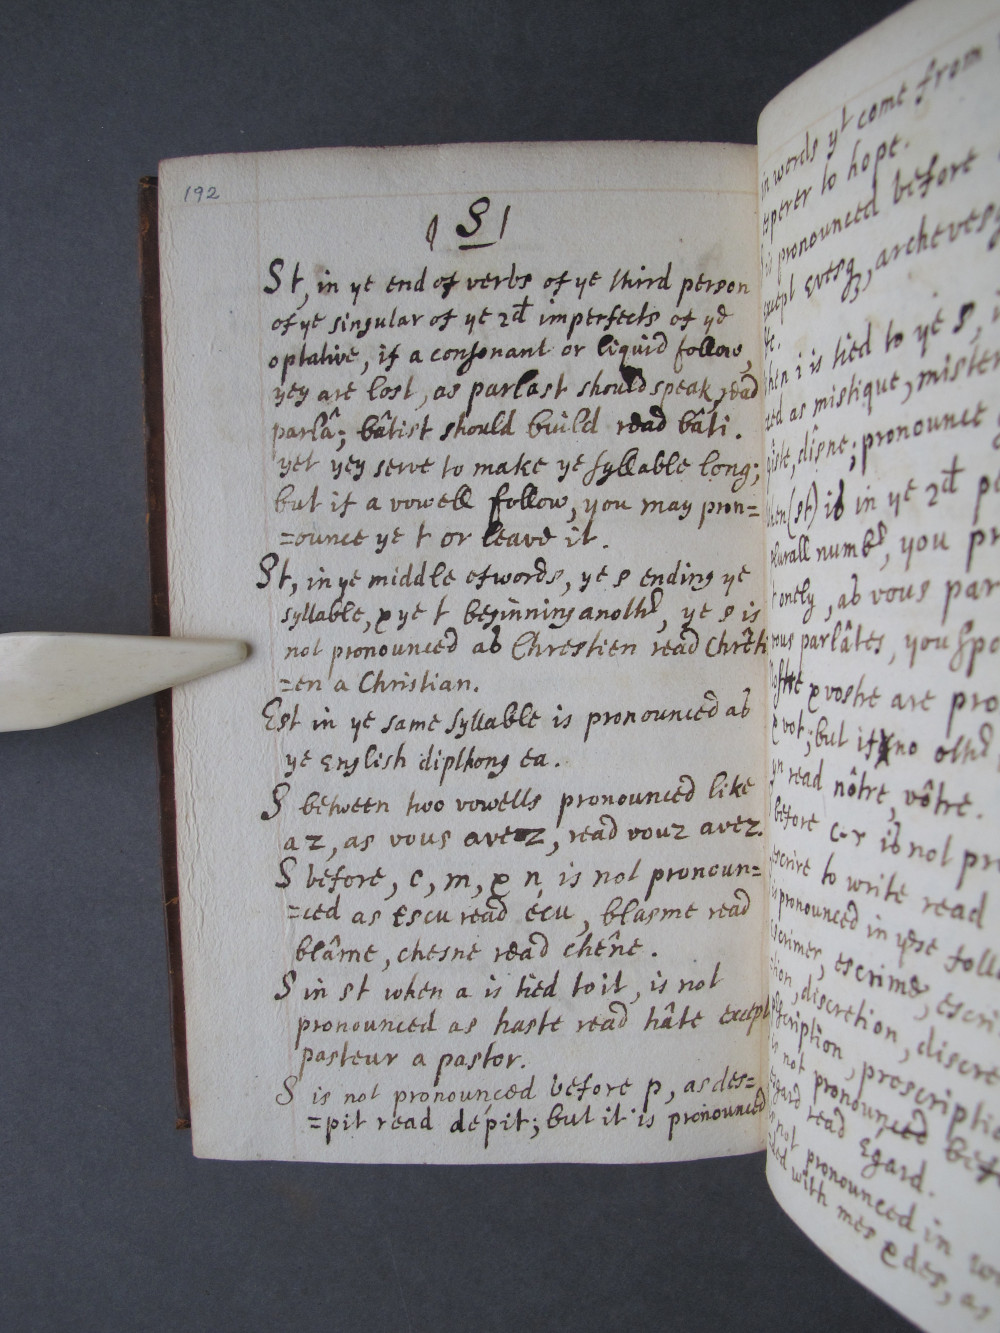 192
( S )
St, in ye end of verbs of ye third person
of ye singular of ye 2d imperfects of ye
optative, if a consonant or liquid follow,
yey are lost, as parlast should speak, read
parlâ; bâtist should build read bâti.
yet yey serve to make ye syllable long;
but if a vowell follow, you may pron=
=ounce ye t or leave it.
St, in ye middle of words, ye s ending ye
syllable, & ye t beginning anothr, ye s is
not pronounced as Chrestien read Chrêti
=en a Christian.
Est in ye same syllable is pronounced as
ye English dipthong ea.
S between two vowells pronounced like
a z, as vous avez, read vouz avez.
S before, c, m, & n, is not pronoun=
=ced as Escu read écu, blasme read
blâme, chesne read chêne.
S in st when a is tied to it, is not
pronounced as haste read hâte except
pasteur a pastor.
S is not pronounced before p, as des=
=pit read dépit; but it is pronounced
in words yt come from
esperer to hope.
is pronounced before
except Evesq, archevesq
etc.
when i is tied to ye s,
as mistique, mister
disne; pronounce
when (st) is in ye 2d pe
plurall numbr, you pr
t onely, as vous par
vous parlâtes, you spo
Nostre & vostre are pro
& vot; but if no othr
yn read nôtre, vôtre.
before c-r is not pr
escrire to write read
is pronounced in yse foll
escrimer, escrime, escri
discretion, discre
proscriptio
is not pronounced bef
read Egard.
is not pronounced in wo
ded with mes & des, as